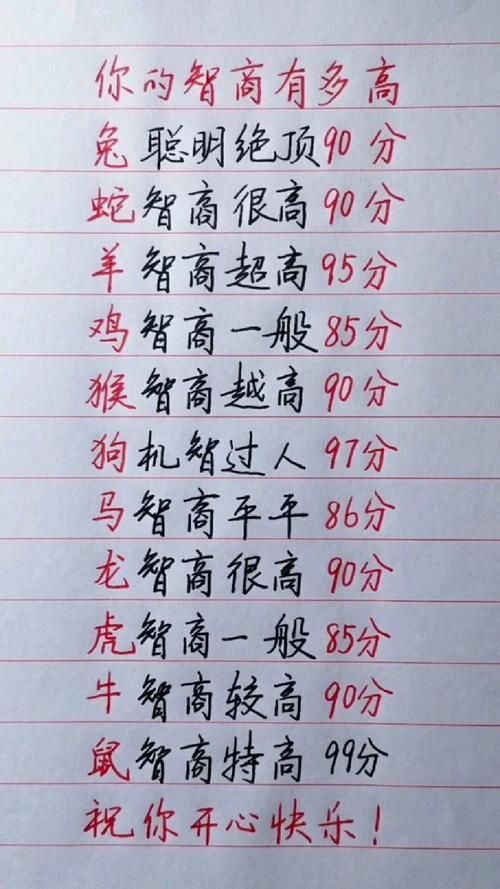 你的智商有多高
兔聪明绝顶90分
蛇智商很高90分
羊智商超高95分
鸡智商一般85分
猴智商越高90分
狗机智过人97分
马智商平平86分
龙智商很高90分
虎智商一般85分
牛智商较高90分
鼠智商特高99分
祝你开心快乐!